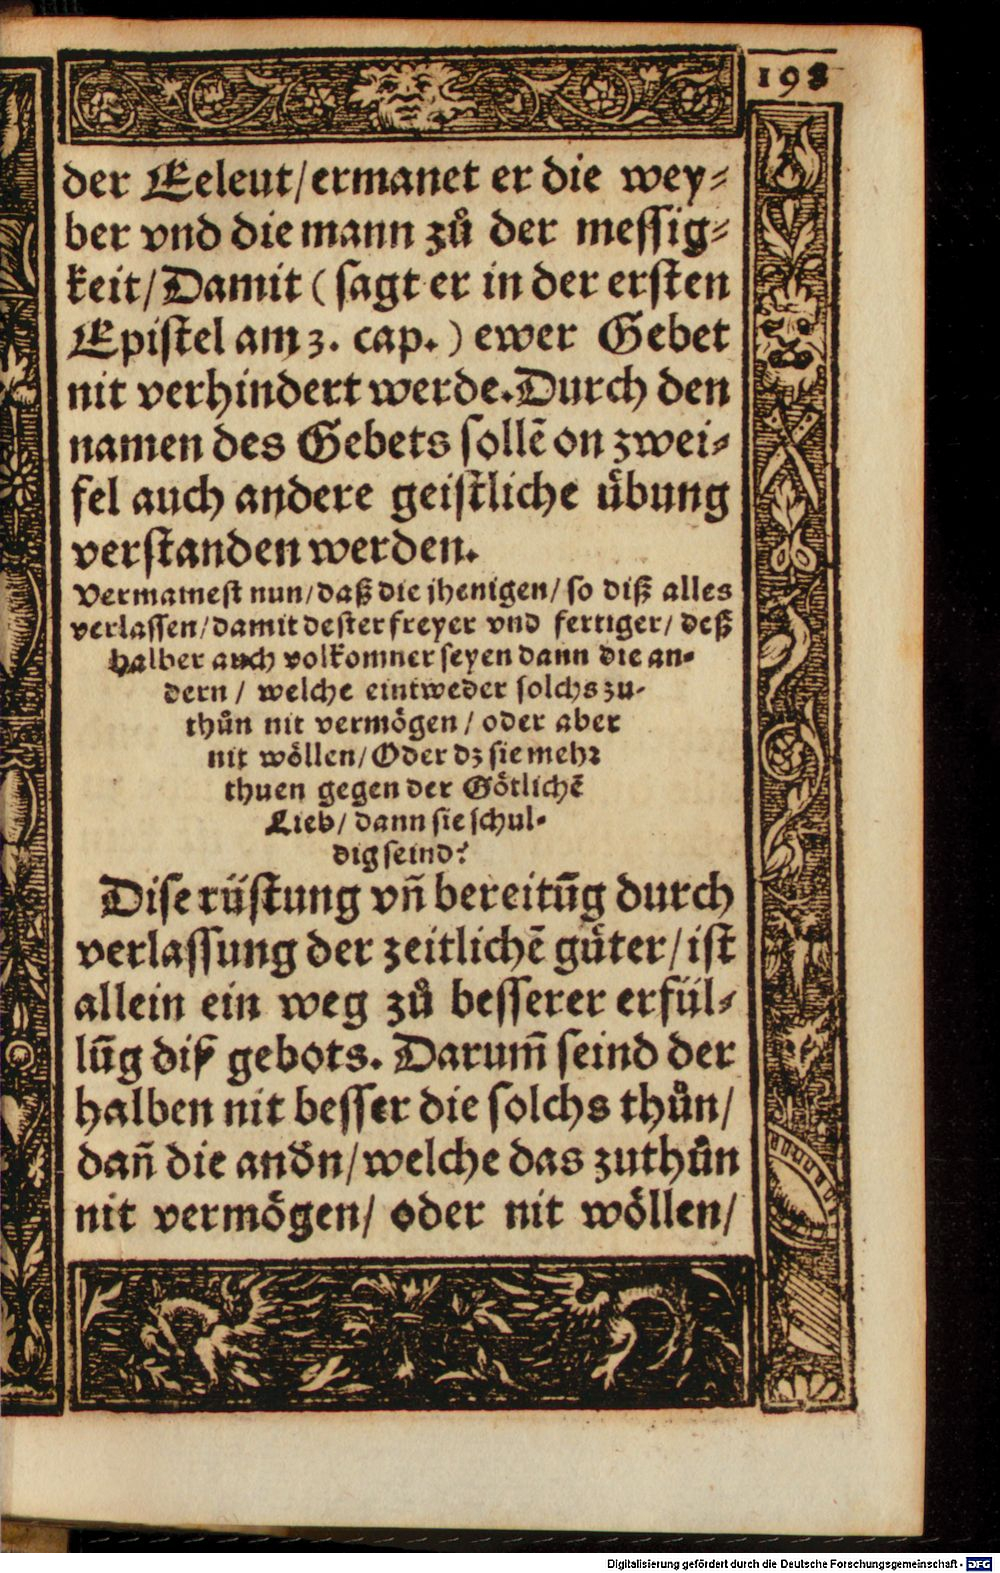 198
der Eeleut/ermanet er die wey⸗
ber vnd die mann zuͦ der messig⸗
keit/Damit ( sagt er in der ersten
Epistel am 3. cap. ) ewer Gebet
nit verhindert werde. Durch den
namen des Gebets sollẽ on zwei⸗
fel auch andere geistliche uͤbung
verstanden werden.
Vermainest nun/daß die jhenigen/ so diß alles
verlassen/damit dester freyer vnd fertiger/ deß
halber auch volkomner seyen dann die an⸗
dern / welche eintweder solchs zu⸗
thuͦn nit vermoͤgen / oder aber
nit woͤllen/Oder dz sie mehr
thuen gegen der Goͤtlichẽ
Lieb/ dann sie schul⸗
dig seind?
Dise ruͤstung vñ bereitũg durch
verlassung der zeitlichẽ guͤter/ist
allein ein weg zuͦ besserer erfuͤl⸗
lũg diß gebots. Darum̃ seind der
halben nit besser die solchs thuͦn/
dañ die andñ/welche das zuthuͦn
nit vermoͤgen/ oder nit woͤllen/
Digitalisierung gefördert durch die Deutsche Forschungsgemeinschaft - DFG